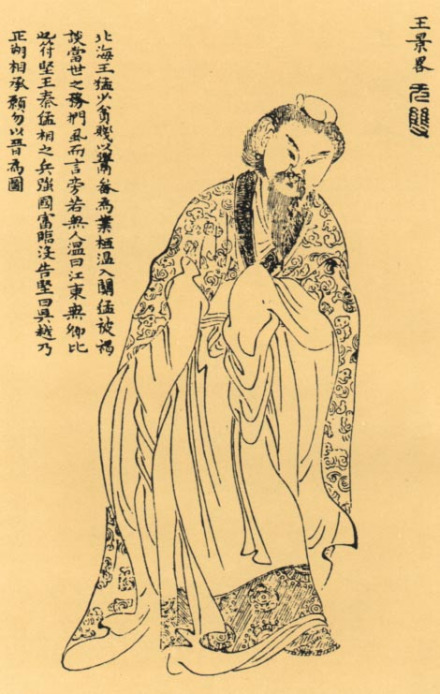 王景畧
无雙
北海王猛少貧賤以鬻畚為業桓温入關猛被褐
談當世之務捫虱而言旁若無人温曰江東無卿比
苻堅王秦猛相之兵強國富臨沒告堅曰吳越乃
正朔相承願勿以晉為圖